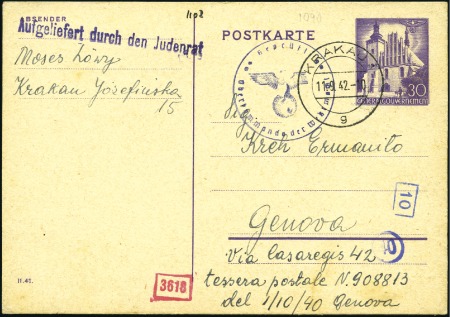 1102
1090
ABSENDER
Aufgeliefert durch den Judenrat
POSTKARTE
Moses Löwy
Krakau Józefińska
15
Geprüft
Oberkommando der Wehrmacht
KRAKAU
42
g
30
GENERALGOUVERNEMENT
Kreh Ermanito
10
Genova
Via Casaregis 42
tessera postale N. 908813
del 1/10/40 Genova
II.41.
3618